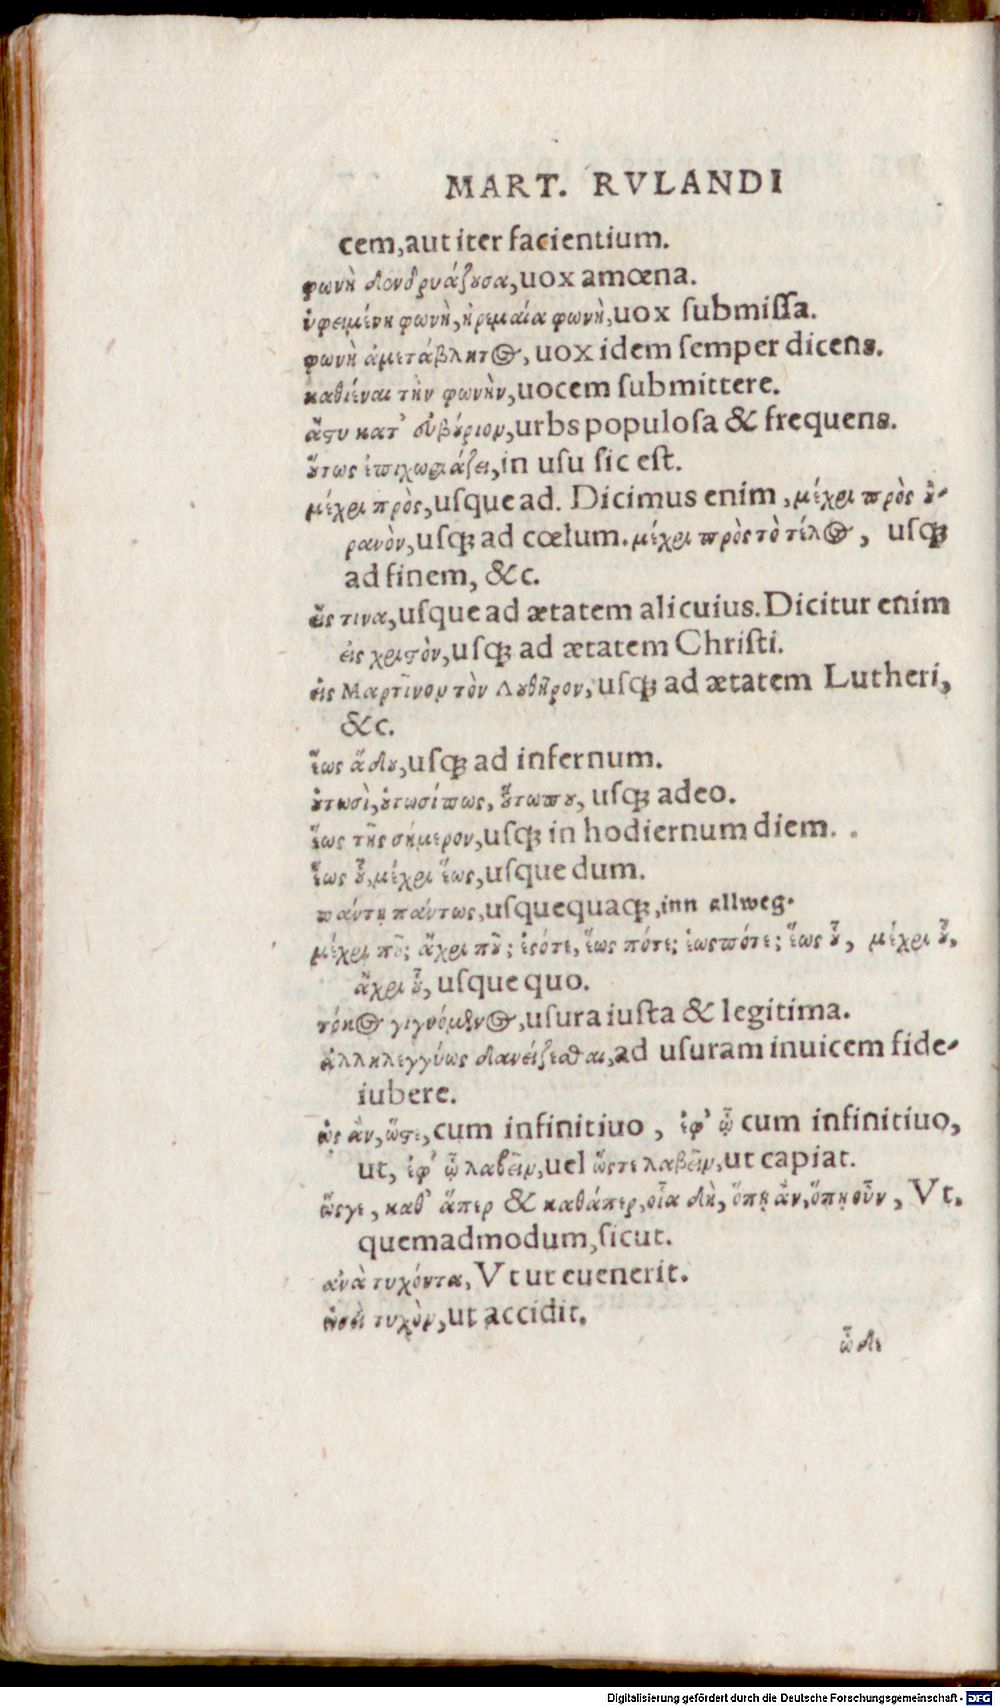 MART. RVLANDI
cem, aut iter facientium.
φωνὴ δονδρυάζουσα, uox amœna.
ὑφειμένη φωνὴ, ἠρεμαία φωνὴ, uox ſubmiſſa.
φωνὴ ἀμετάβλητος, uox idem ſemper dicens.
καθιέναι τὴν φωνὴν, uocem ſubmittere.
ἄστυ κατ' συβούριον, urbs populoſa & frequens.
οὕτως ἐπιχωριάζει, in uſu ſic eſt.
μέχρι πρὸς, uſque ad. Dicimus enim, μέχρι πρὸς οὐ-
ρανὸν, uſq; ad cœlum. μέχρι πρὸς τὸ τέλος, uſq;
ad finem, &c.
εἴς τινα, uſque ad ætatem alicuius. Dicitur enim
εἰς χριστὸν, uſq; ad ætatem Chriſti.
εἰς Μαρτῖνον τὸν Λουθῆρον, uſq; ad ætatem Lutheri,
&c.
ἕως ᾅδου, uſq; ad infernum.
οὑτωσὶ, οὑτωσίπως, οὕτωπου, uſq; adeo.
ἕως τῆς σήμερον, uſq; in hodiernum diem.
ἕως οὗ, μέχρι ἕως, uſque dum.
πάντῃ πάντως, uſquequaq;, inn allweg.
μέχρι ποῦ; ἄχρι ποῦ; ἐςότε, ἕως πότε; ἑωςπότε; ἕως οὗ, μέχρι οὗ,
ἄχρι οὗ, uſque quo.
τόκος γιγνόμενος, uſura iuſta & legitima.
ἀλληλεγγύως δανείζεσθαι, ad uſuram inuicem fide-
iubere.
ὡς ἂν, ὥστε, cum infinitiuo, ἐφ' ᾧ cum infinitiuo,
ut, ἐφ' ᾧ λαβεῖν, uel ὥστε λαβεῖν, ut capiat.
ὥςγε, καθ' ἅπερ & καθάπερ, οἷα δὴ, ὅπῃ ἂν, ὅπῃοὖν, Vt.
quemadmodum, ſicut.
ανὰ τυχόντα, Vt ut euenerit.
ὡσεὶ τυχὸν, ut accidit.
ὧδε
Digitalisierung gefördert durch die Deutsche Forschungsgemeinschaft - DFG